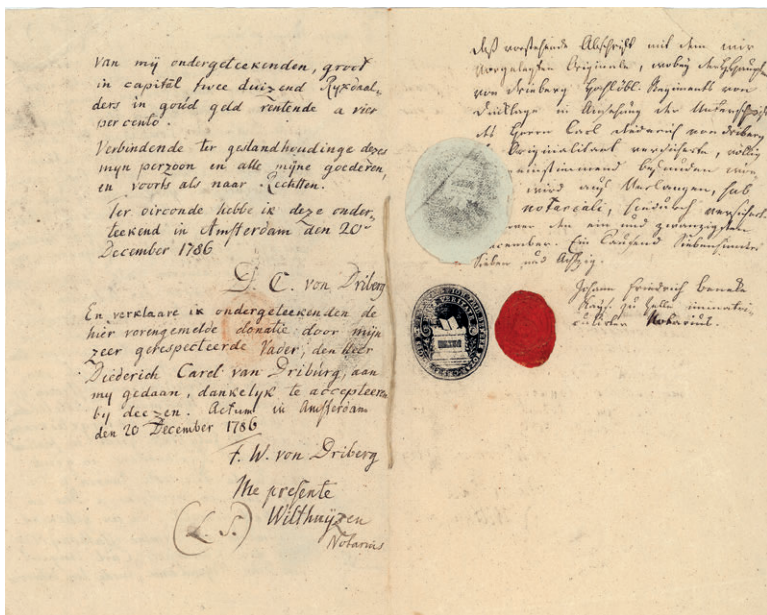 Van mij ondergeteekenden, groot
in capitâl twee duizend Ryxdaal-
ders in goud geld rentende a vier
per cento.
Verbindende ter gestandhoudinge dezes
mijn perzoon en alle mijne goederen,
en voorts als naar Rechten.
Ter oirconde hebbe ik deze onder-
teekend in Amsterdam den 20
December 1786
D. C. von Driberg
En verklaare ik ondergeteekenden de
hier vorengemelde donatie door mijn
zeer gerespecteerde Vader, den Heer
Diederich Carel van Driburg, aan
my gedaan, dankelyk te accepteeren
by deezen. Actum in Amsterdam
den 20 December 1786
F. W. von Driberg
Me presente
Wilthuyzen
(L. S.)
Notarius
daß vorstehende Abschrift mit dem mir
vorgelegten Originale, wobey
von Drieberg Hochlöbl. Regiments von
in Ansehung der Unterschrift
des Herrn Carl Diederich von Driberg
Originalitaet versicherte, völlig
befunden
wird auf Verlangen, sub
notariali, hiedurch versichert
den ein und zwanzigsten
December. Ein Tausend Siebenhundert
Sieben und Achtzig.
Johann Friedrich Beneke
Kays. zu Zelle immatri-
culirter Notarius.